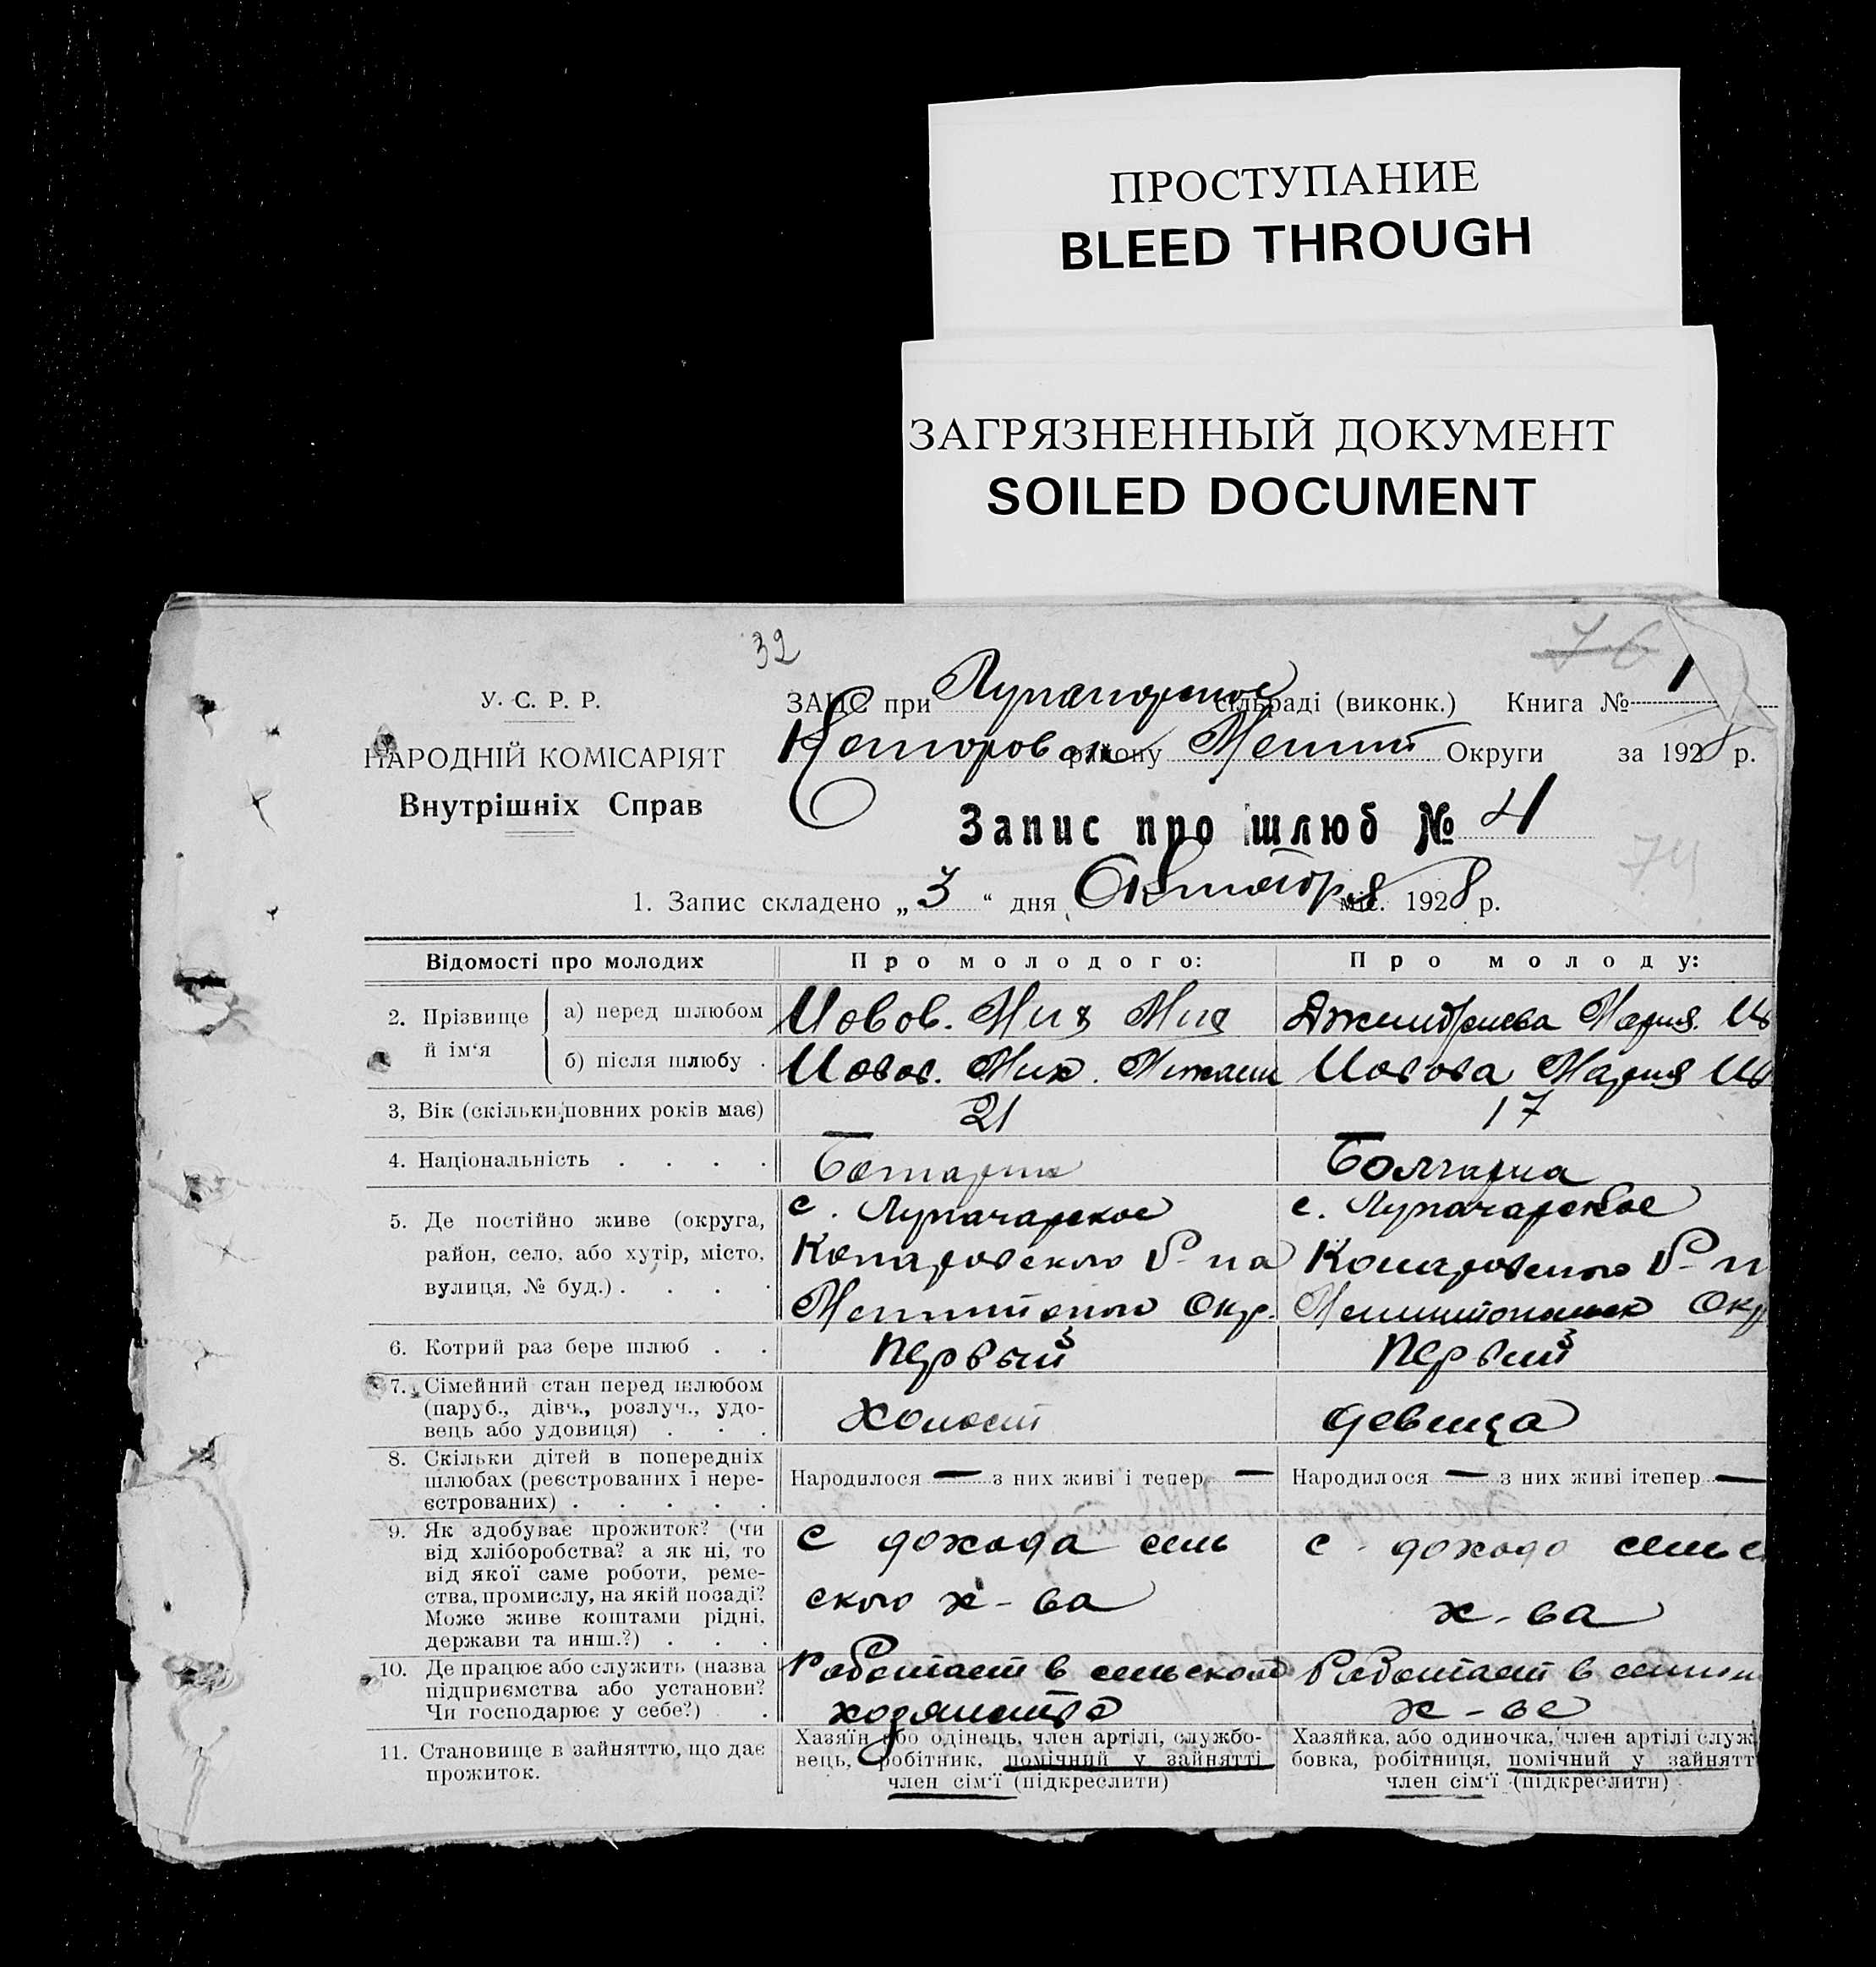 ПРОСТУПАНИЕ
BLEED THROUGH
ЗАГРЯЗНЕННЫЙ ДОКУМЕНТ
SOILED DOCUMENT
32
76
У. С. Р. Р.
НАРОДНІЙ КОМІСАРІЯТ
Внутрішніх Справ
ЗАГС при сільраді (виконк.) Книга № 1
району Округи за 1928 р.
Запис про шлюб № 4
74
1. Запис складено „3“ дня Октября міс. 1928 р.
Відомості про молодих
Про молодого:
Про молоду:
2. Прізвище й ім‘я
а) перед шлюбом
Иовов. Мих Мих
Мария. Ив
б) після шлюбу .
Иовов. Мих. Михаил
Иовова Мария Ив
3, Вік (скільки повних років має)
21
17
4. Національність . . . .
Болгарка
5. Де постійно живе (округа,
район, село, або хутір, місто,
вулиця, № буд.) . . . .
с. Луначарское
Комаровского р-на
Окр.
с. Луначарское
Комаровского р-н
Окр
6. Котрий раз бере шлюб . .
Первый
Первый
7. Сімейний стан перед шлюбом
(паруб., дівч., розлуч., удо-
вець або удовиця) . . .
Холост
девица
8. Скільки дітей в попередніх
шлюбах (реєстрованих і нере-
єстрованих) . . . . .
Народилося — з них живі і тепер —
Народилося — з них живі ітепер —
9. Як здобуває прожиток? (чи
від хліборобства? а як ні, то
від якої саме роботи, реме-
ства, промислу, на якій посаді?
Може живе коштами рідні,
держави та инш.?) . . .
с дохода сель
ского х-ва
с дохода сельс
х-ва
10. Де працює або служить (назва
підприємства або установи?
Чи господарює у себе?) .
Работает в сельском
хозяйстве
Работает в
х-ве
11. Становище в зайняттю, що дає
прожиток.
Хазяїн або одінець, член артілі, службо-
вець, робітник, помічний у зайнятті
член сім‘ї (підкреслити)
Хазяйка, або одиночка, член артілі служ
бовка, робітниця, помічний у зайнятт
член сім‘ї (підкреслити)